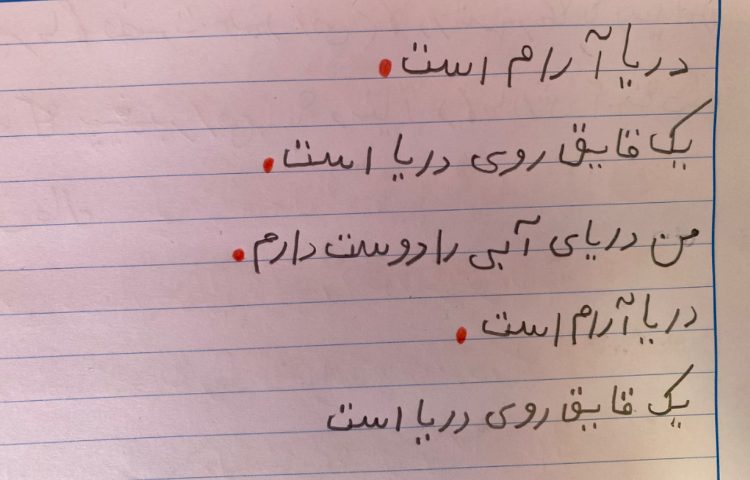 دریا آرام است.
یک قایق روی دریا است.
من دریای آبی را دوست دارم.
دریا آرام است.
یک قایق روی دریا است